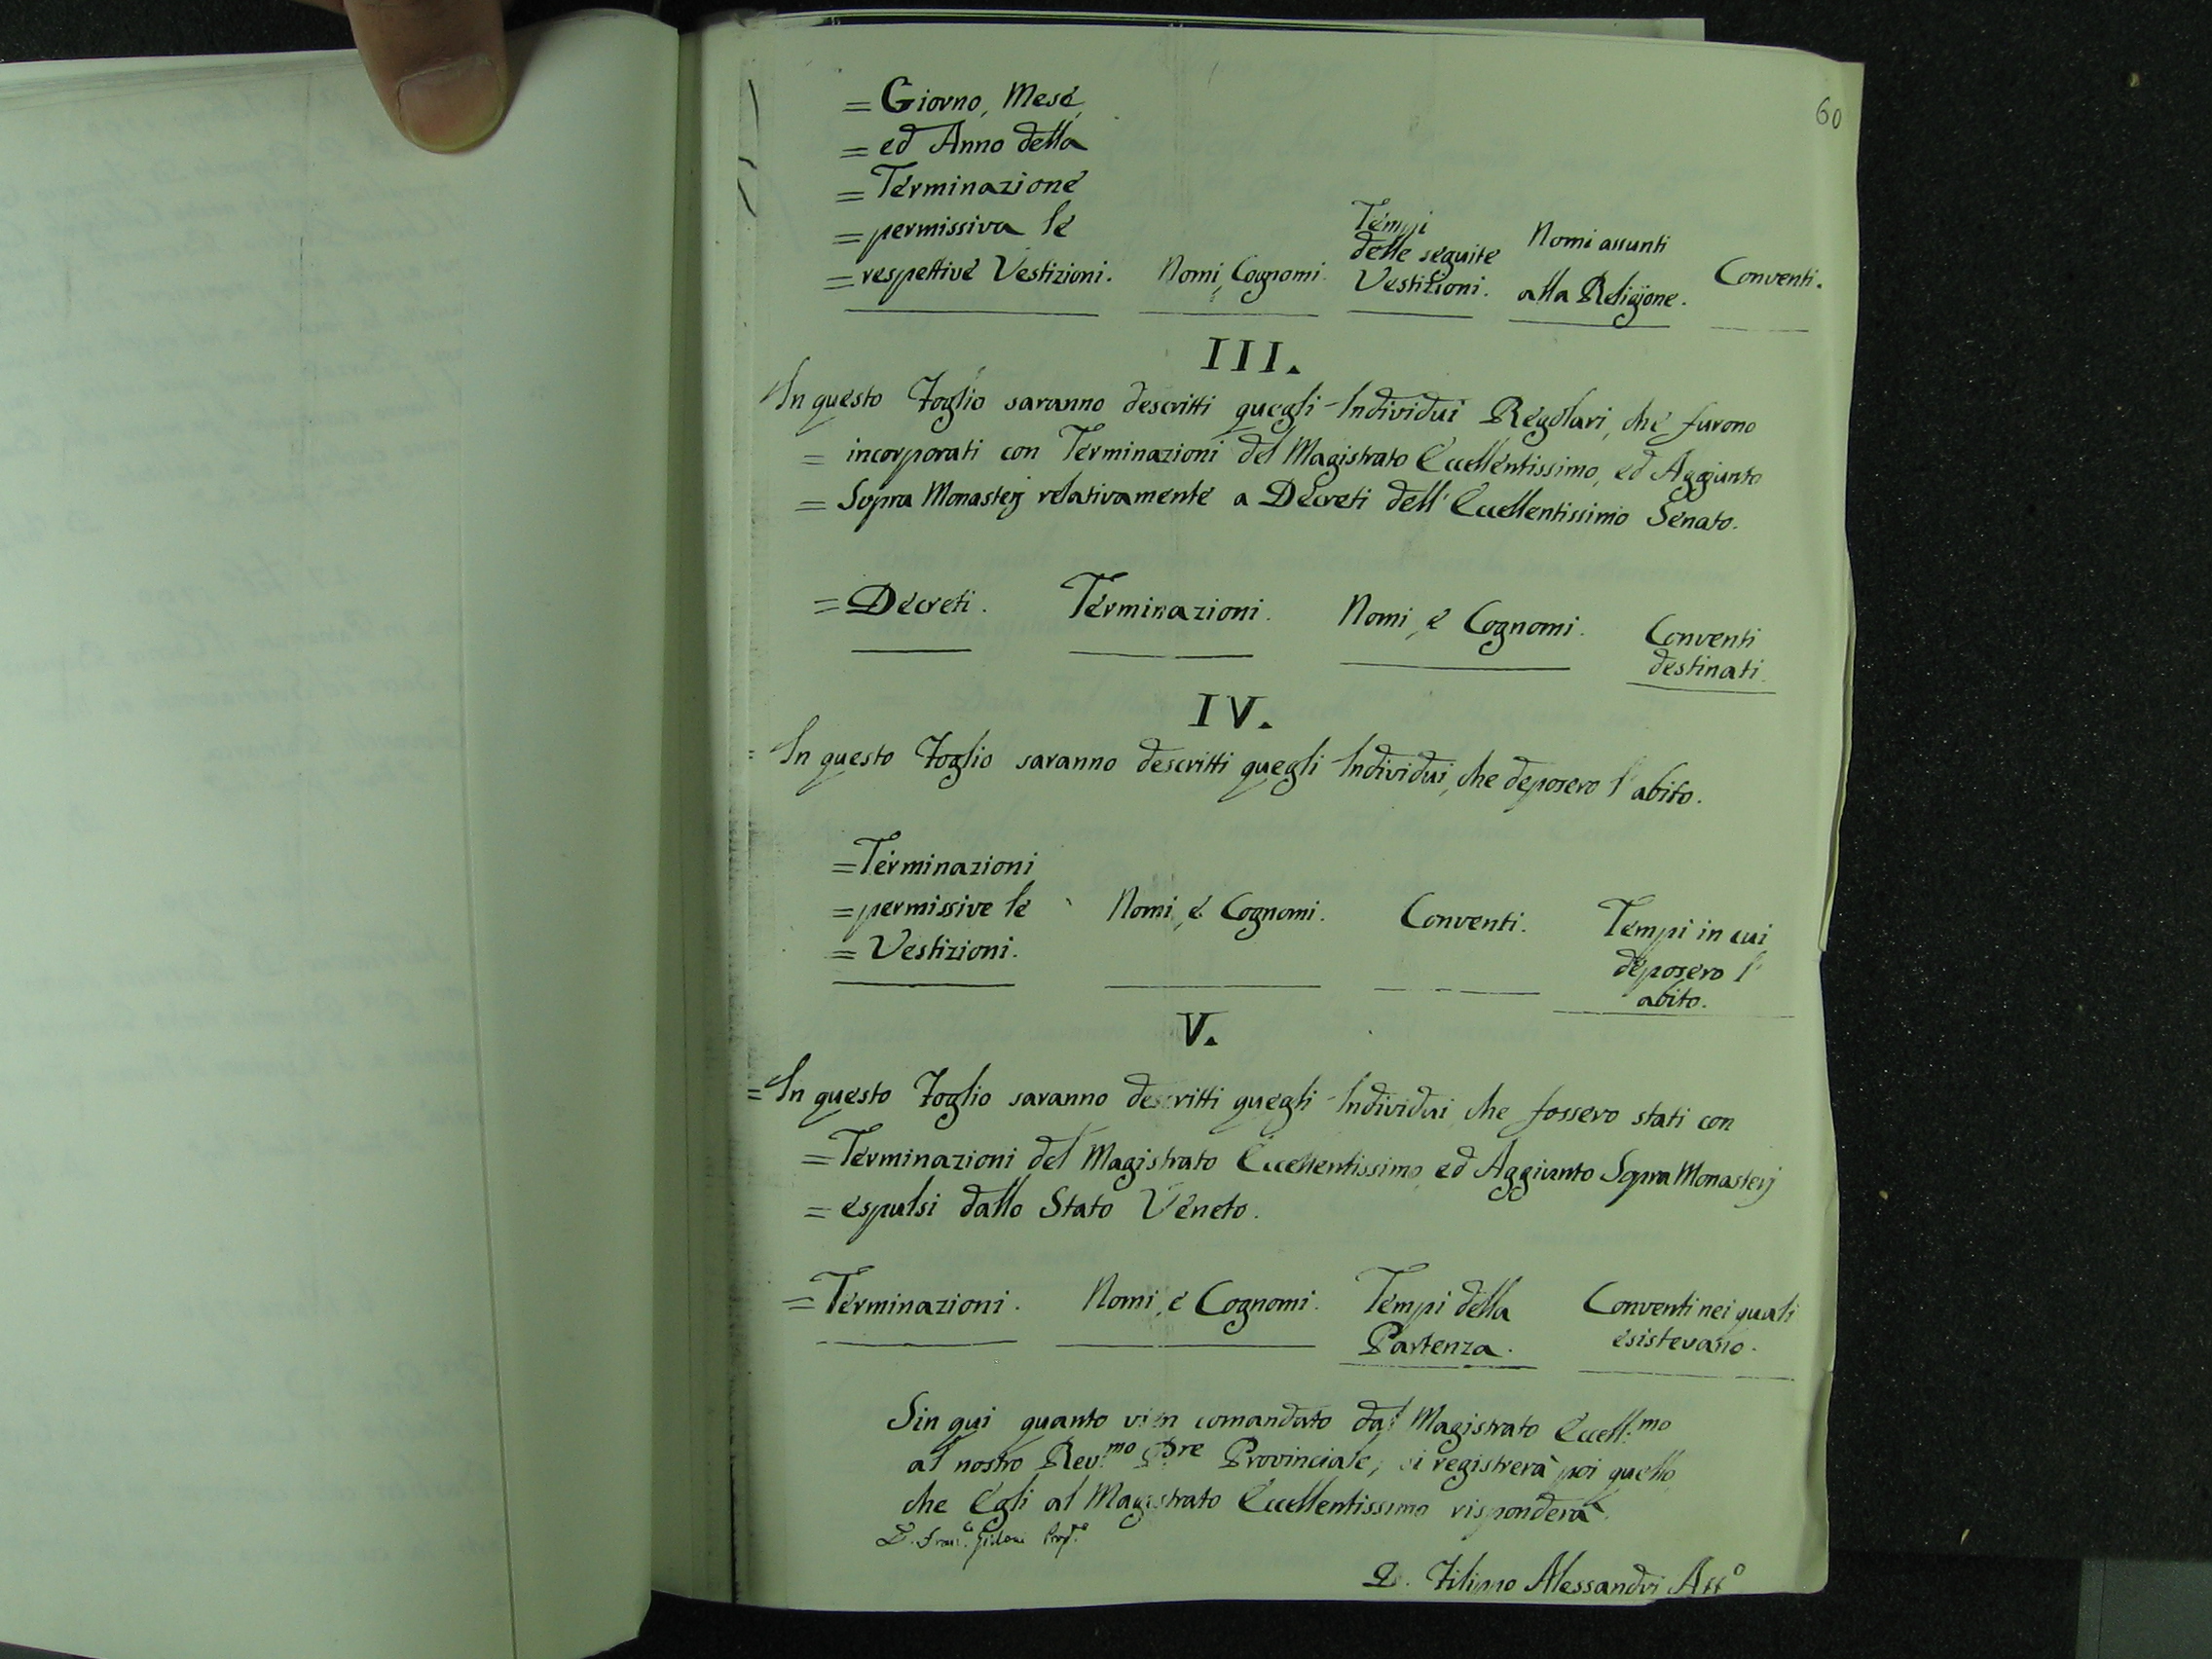 60
= Giorno, Mese,
= ed Anno della
= Terminazione
= permissiva le
= respettive Vestizioni. Nomi, Cognomi. Tempi delle seguite Vestizioni. Nomi assunti alla Religione. Conventi.
III.
In questo Foglio saranno descritti quegli Individui Regolari, che furono
= incorporati con Terminazioni del Magistrato Eccellentissimo, ed Aggiunto
= Sopra Monasterj relativamente a Decreti dell' Eccellentissimo Senato.
= Decreti. Terminazioni. Nomi, e Cognomi. Conventi
destinati.
IV.
= In questo Foglio saranno descritti quegli Individui, che deposero l' abito.
= Terminazioni
= permissive le Nomi, e Cognomi. Conventi. Tempi in cui
= Vestizioni. deposero l'
abito.
V.
= In questo Foglio saranno descritti quegli Individui, che fossero stati con
= Terminazioni del Magistrato Eccellentissimo, ed Aggiunto Sopra Monasterj
= espulsi dallo Stato Veneto.
= Terminazioni. Nomi, e Cognomi. Tempi della Conventi nei quali
Partenza. esistevano.
Sin qui quanto vien comandato dal Magistrato Eccell:mo
al nostro Rev:mo Pre Provinciale; si registrerà poi quello,
che Egli al Magistrato Eccellentissimo risponderà.
D. Filippo Alessandri Att.o